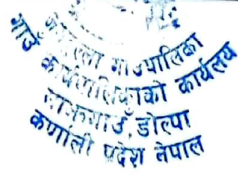 गाउपालिका
गाउँ कार्यपालिकाको कार्यलय
डोल्पा
कणाली प्रदेश नेपाल